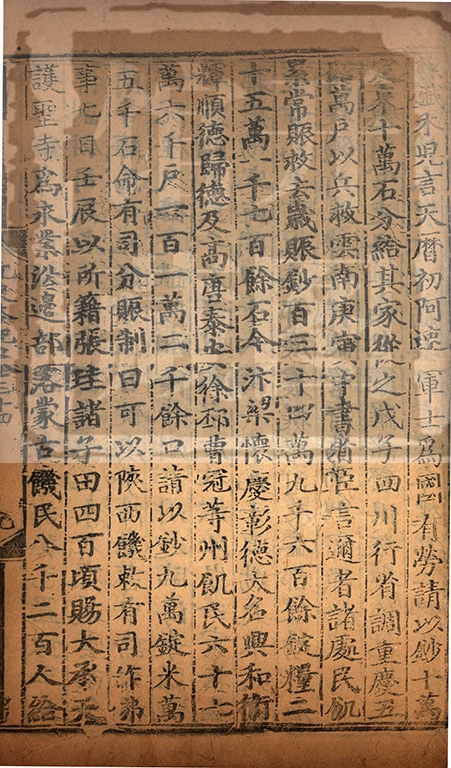 鐵木兒言天曆初阿速軍士爲國有勞請以鈔十萬
米十萬石分給其家從之戊子四川行省調重慶五
萬戶以兵救雲南庚寅中書省臣言邇者諸處民飢
累常賑救去歲賑鈔百三十四萬九千六百餘錠糧二
十五萬一千七百餘石今汴梁懷慶彰德大名興和衛
輝順德歸德及高唐泰安徐邳曹冠等州飢民六十七
萬六千戶一百一萬二千餘口請以鈔九萬錠米萬
五千石命有司分賑制曰可以陝西饑敕有司作弗
事七日壬辰以所籍張珪諸子田四百頃賜大承天
護聖寺爲永業沿邊部落蒙古饑民八千二百人給